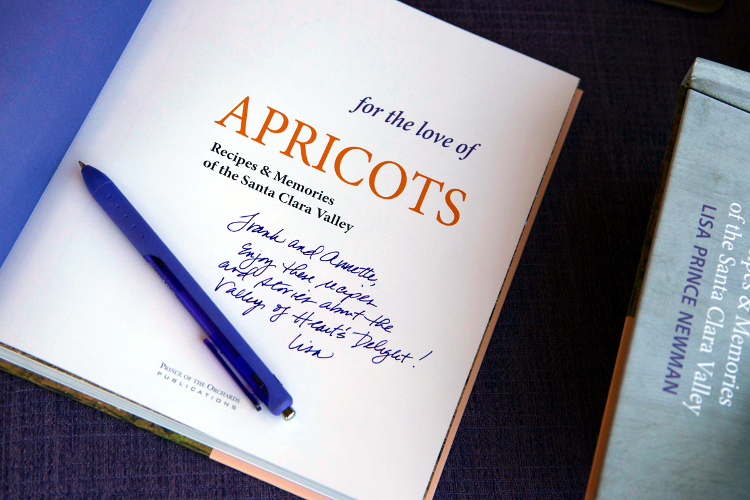 for the love of
APRICOTS
Recipes & Memories
of the Santa Clara Valley
Frank and Annette,
Enjoy these recipes
and stories about the
Valley of Heart's Delight!
Lisa
PRINCE OF THE ORCHARDS
PUBLICATIONS
& Memories
of the Santa Clara Valley
LISA PRINCE NEWMAN